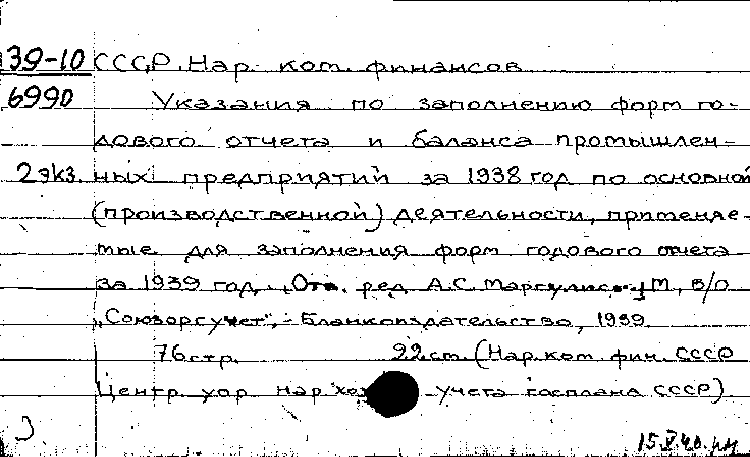 39-10 СССР. Нар. ком. финансов
6990 Указания по заполнению форм го-
дового отчета и баланса промышлен-
2 экз. ных предприятий за 1938 год по основной
(производственной) деятельности, применяе-
мые для заполнения форм годового отчета
за 1939 год. [Отв. ред. А.С. Маргулис] М, в/о
"Союзоргучет", - Бланкоиздательство, 1939.
76 стр. 22 см. (Нар. ком. фин. СССР
Центр. упр. нар. хоз. учета госплана СССР)
15.V.40.